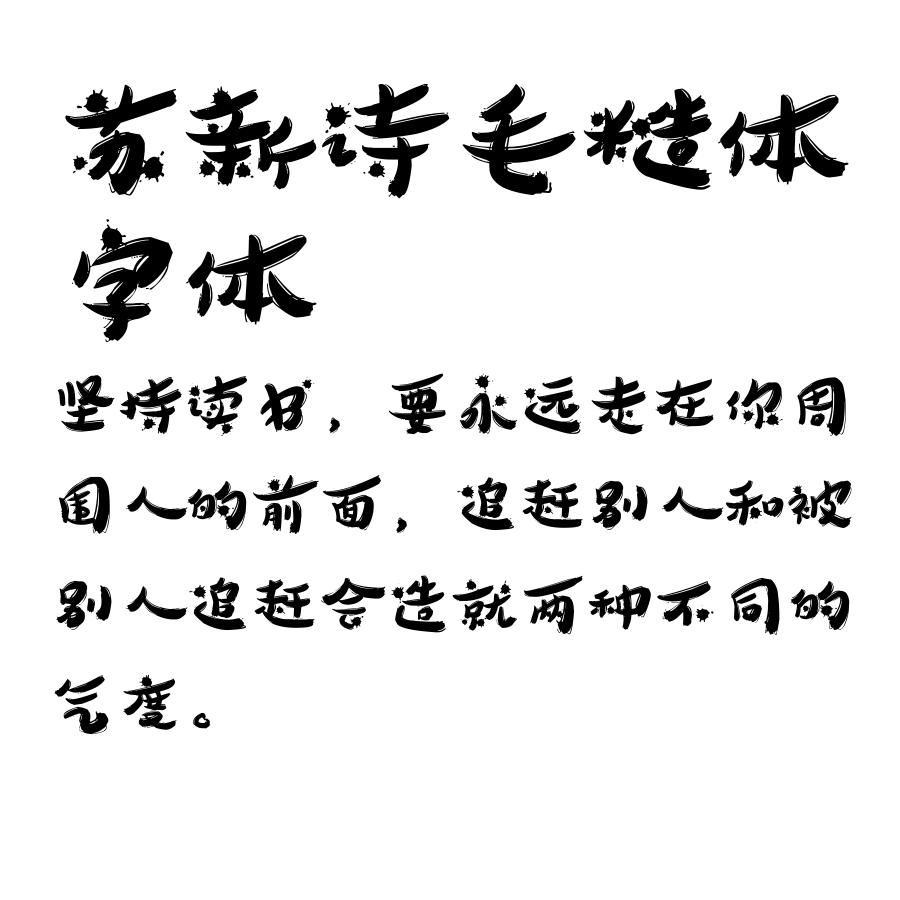 苏新诗毛糙体
字体
坚持读书，要永远走在你周
围人的前面，追赶别人和被
别人追赶会造就两种不同的
气度。